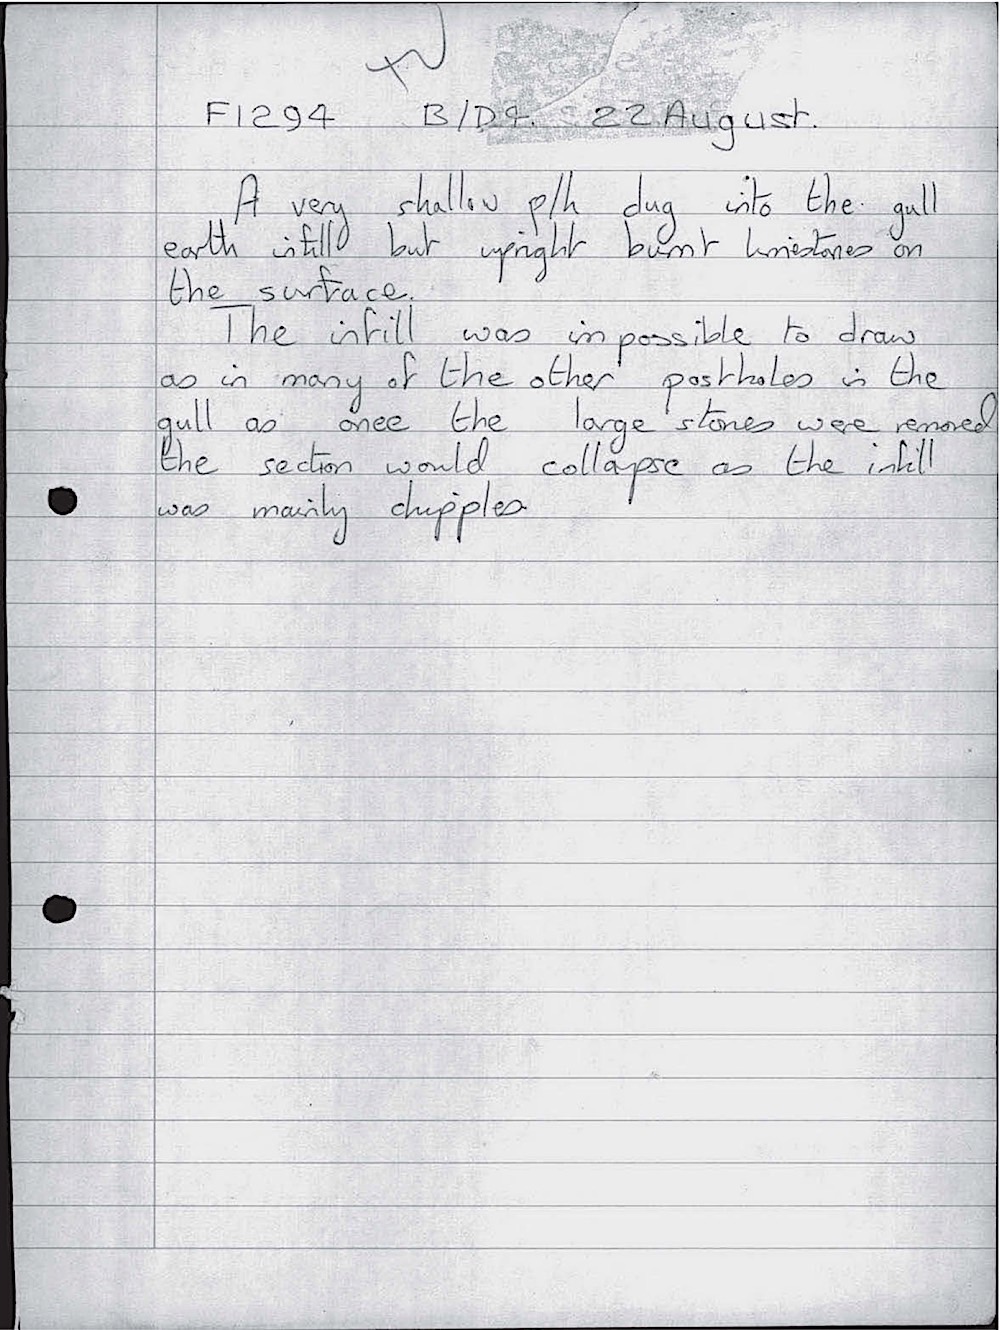 F1294 B/D9. 22 August.
A very shallow p/h dug into the gull
earth infill but upright burnt limestones on
the surface.
The infill was impossible to draw
as in many of the other postholes in the
gull as once the large stones were removed
the section would collapse as the infill
was mainly chipples